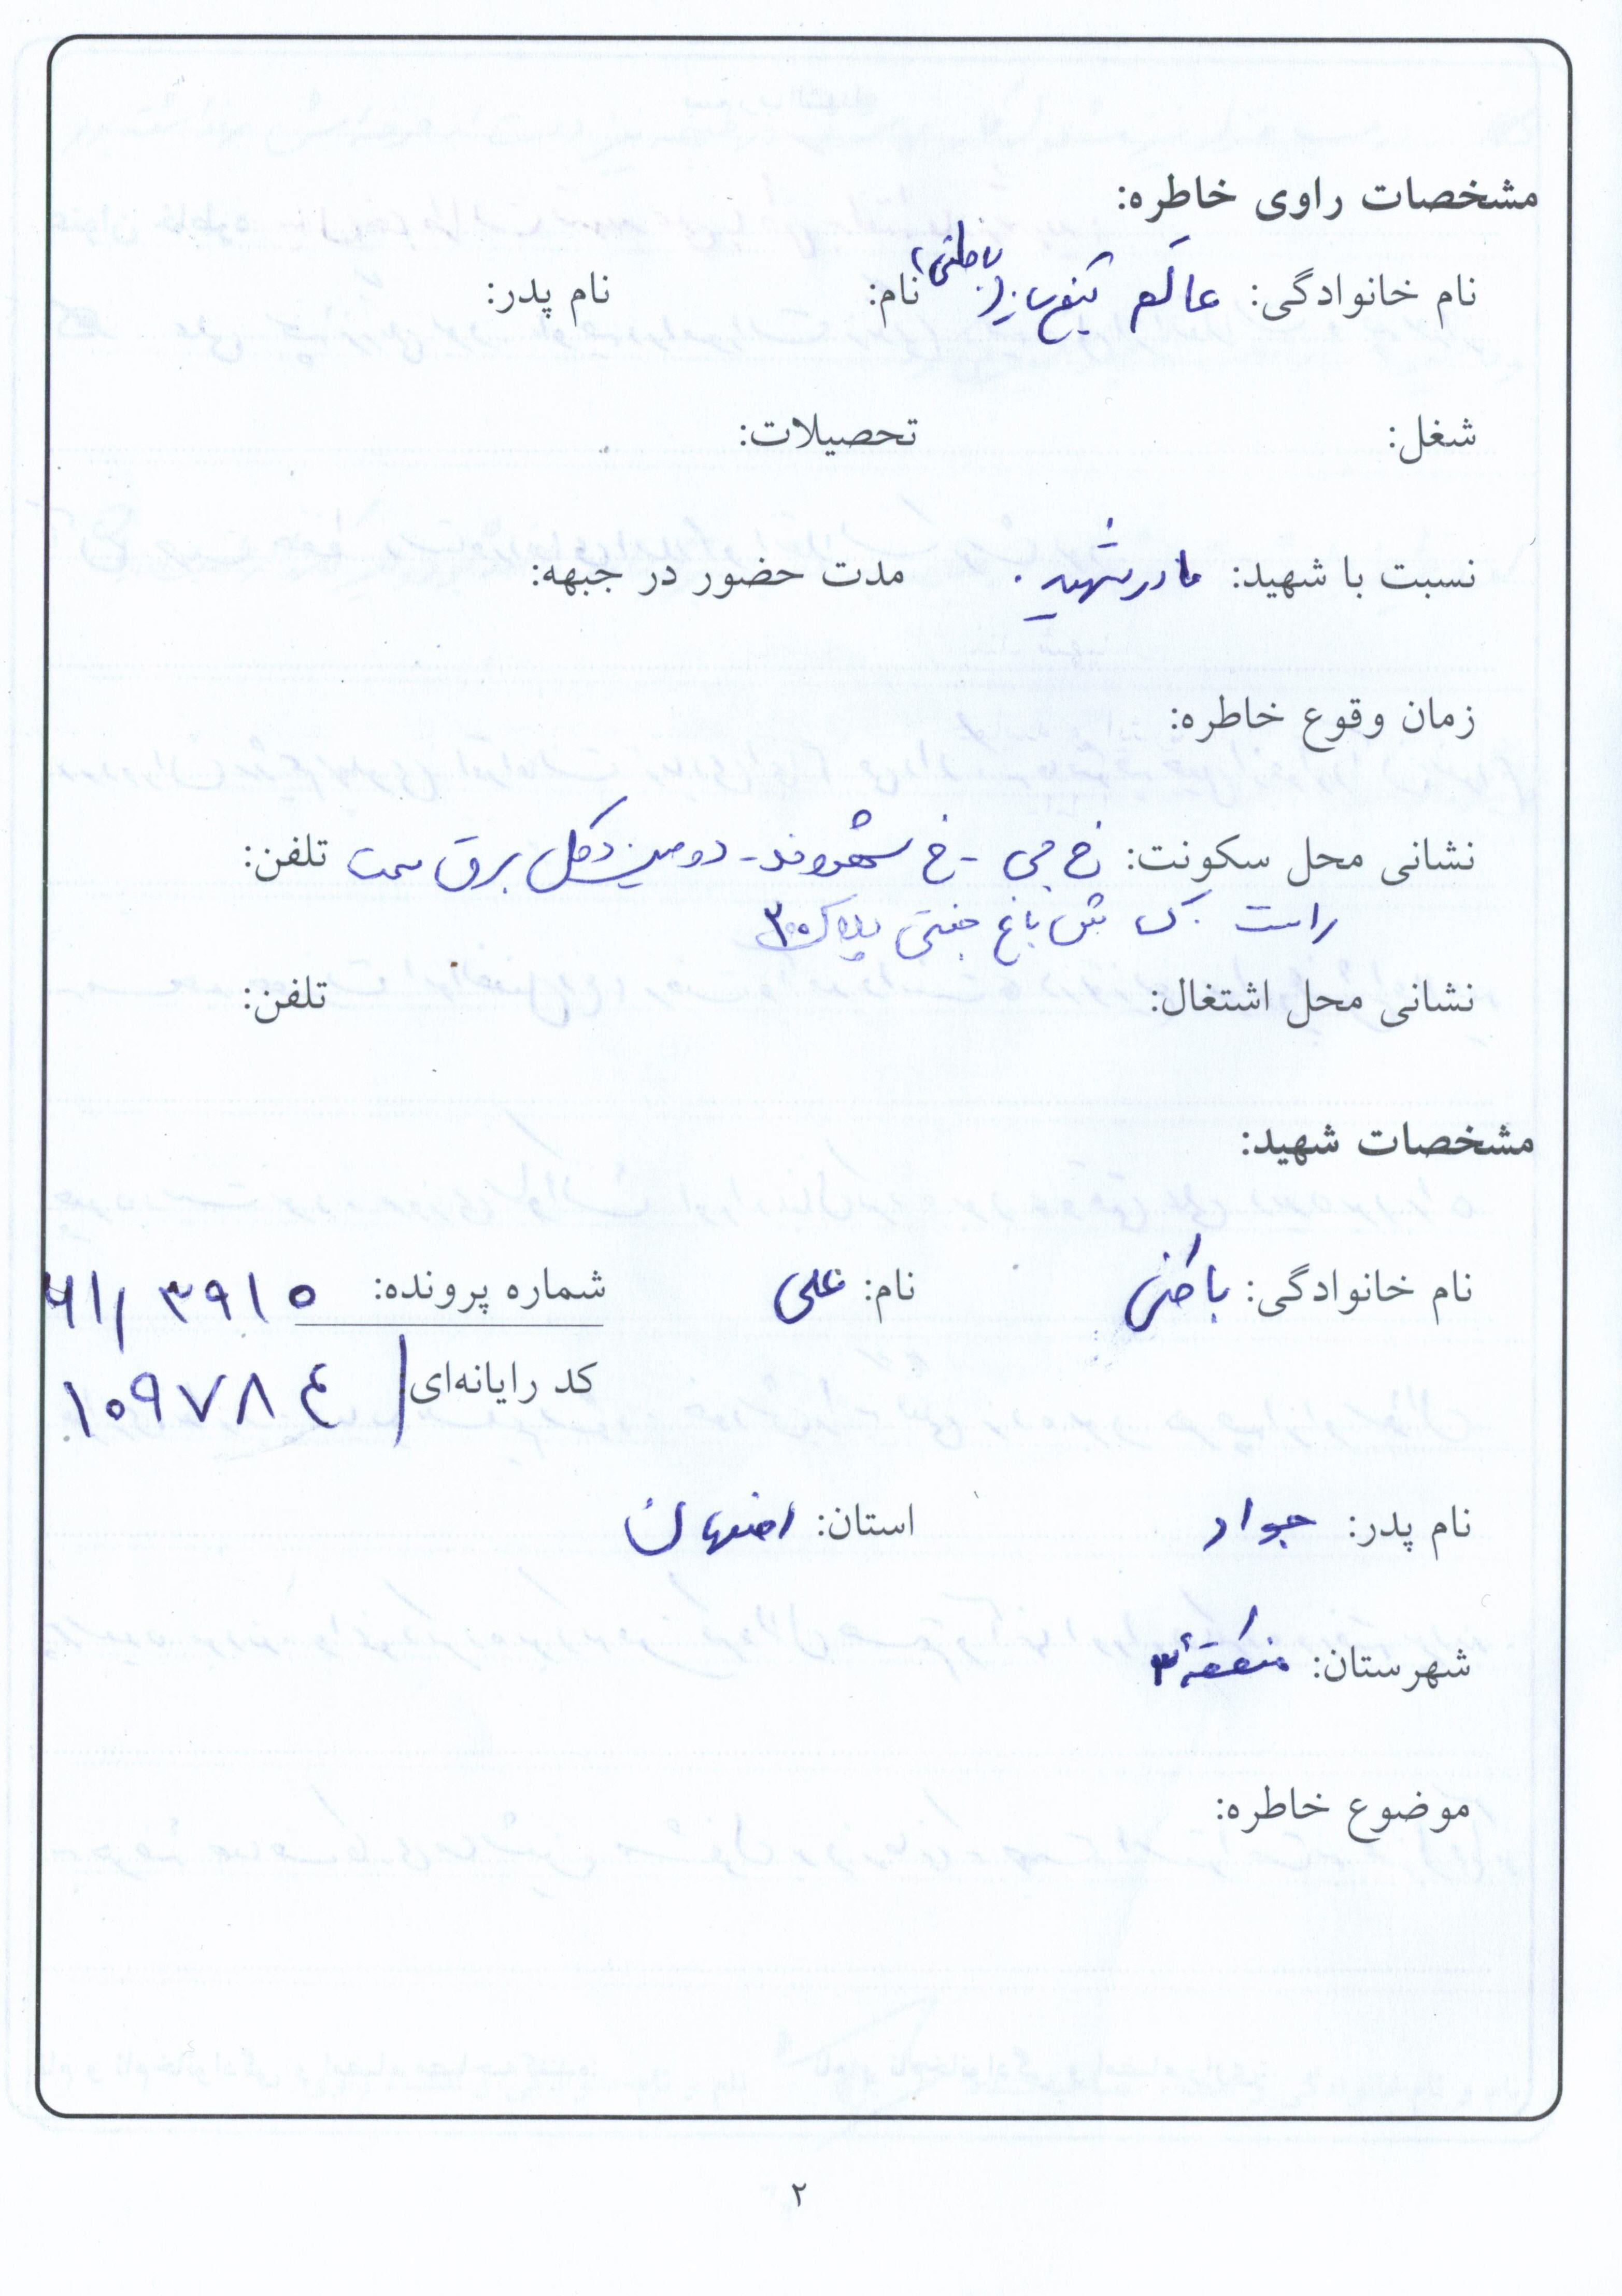 مشخصات راوی خاطره:
نام خانوادگی: عالم (باطنی) نام: نام پدر:
شغل: تحصیلات:
نسبت با شهید: مادر شهید. مدت حضور در جبهه:
زمان وقوع خاطره:
نشانی محل سکونت: خ جی - خ شهروند - دومین دکل برق سمت تلفن:
راست بن باغ جنتی پلاک ۳۰
نشانی محل اشتغال: تلفن:
مشخصات شهید:
نام خانوادگی: باطنی نام: علی شماره پرونده: ۶۱/۳۹۱۵
کد رایانه‌ای ۱۰۹۷۸٤
نام پدر: جواد استان: اصفهان
شهرستان: منطقه ۳
موضوع خاطره:
۲